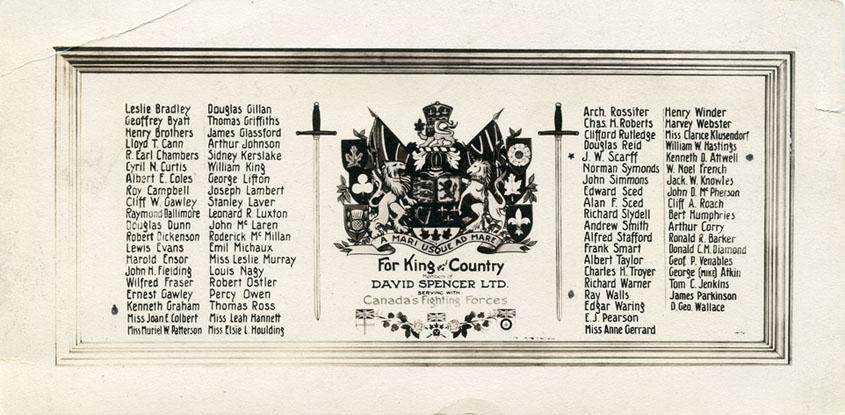 Leslie Bradley
Geoffrey Byatt
Henry Brothers
Lloyd T. Cann
R. Earl Chambers
Cyril N. Curtis
Albert E. Coles
Roy Campbell
Cliff W. Gawley
Raymond Dallimore
Douglas Dunn
Robert Dickenson
Lewis Evans
Harold Ensor
John H. Fielding
Wilfred Fraser
Ernest Gawley
Kenneth Graham
Miss Joan E Colbert
Miss Muriel W. Patterson
Douglas Gillan
Thomas Griffiths
James Glassford
Arthur Johnson
Sidney Kerslake
William King
George Lifton
Joseph Lambert
Stanley Laver
Leonard R. Luxton
John Mc Laren
Roderick Mc Millan
Emil Michaux
Miss Leslie Murray
Louis Nagy
Robert Ostler
Percy Owen
Thomas Ross
Miss Leah Hannett
Miss Elsie L. Houlding
A MARI USQUE AD MARE
For King and Country
Members of
DAVID SPENCER LTD.
SERVING WITH
Canada's Fighting Forces
Arch. Rossiter
Chas. H. Roberts
Clifford Rutledge
Douglas Reid
★ J. W. Scarff
Norman Symonds
John Simmons
Edward Sced
Alan F. Sced
Richard Slydell
Andrew Smith
Alfred Stafford
Frank Smart
Albert Taylor
Charles H. Troyer
Richard Warner
Ray Walls
Edgar Waring
E. J. Pearson
Miss Anne Gerrard
Henry Winder
Harvey Webster
Miss Clarice Klusendorf
William W. Hastings
Kenneth D. Attwell
W. Noel French
Jack. W. Knowles
John D. McPherson
Cliff A. Roach
Bert Humphries
Arthur Corry
Ronald R. Barker
Donald C. M. Diamond
Geof. P. Venables
George (Mike) Atkin
Tom C. Jenkins
James Parkinson
D. Geo. Wallace